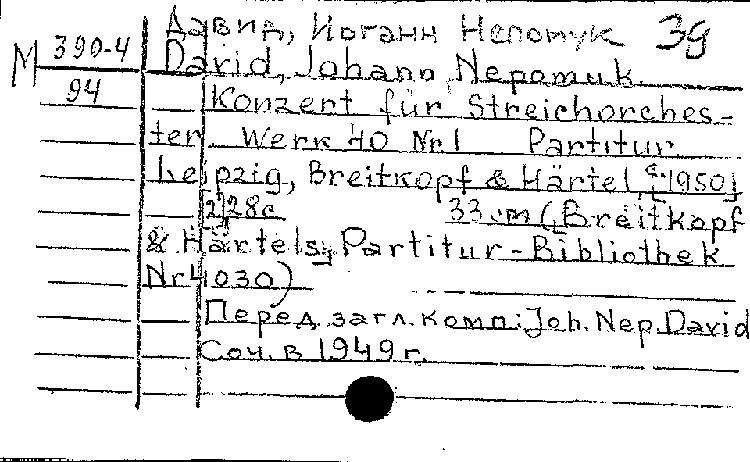 Давид, Иоганн Непомук 3g
М 390-4 David, Johann Nepomuk.
94 Konzert für Streichorches-
ter Werk 40 Nr 1 Partitur
Leipzig, Breitkopf & Härtel, [c. 1950]
[2], 28 c 33 cm (Breitkopf
& Härtels, Partitur-Bibliothek
Nr 4030)
Перед. загл. комп: Joh. Nep. David
Соч. в 1949 г.